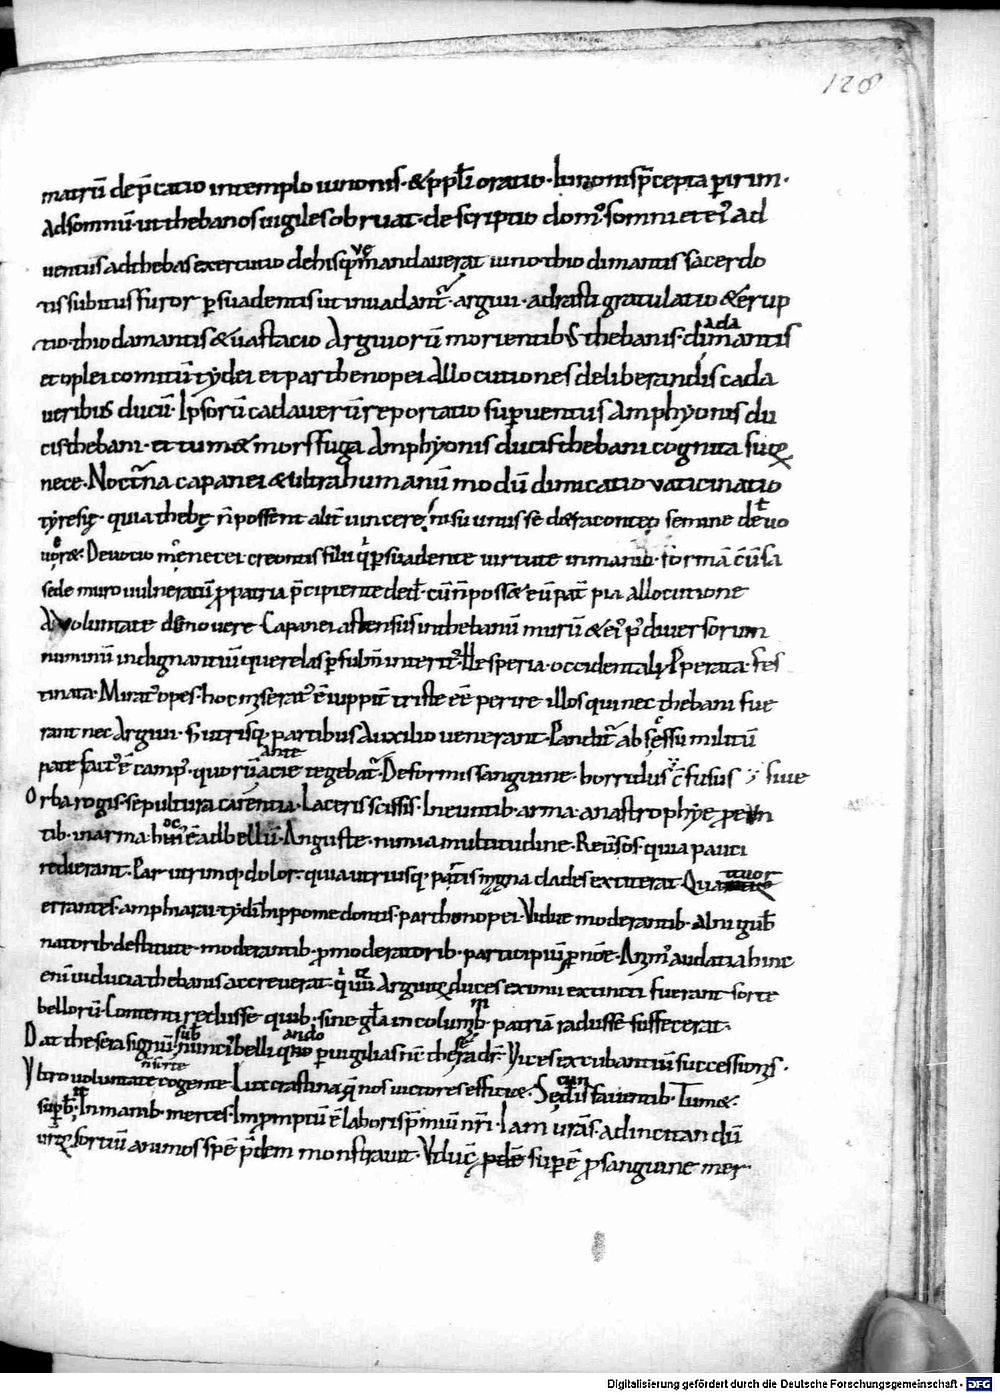 128
matrū dep̄catio intemplo iunonis · & p̄pl̄i oratio · Iunonis p̄cepta p irim ·
Adsomnū · ut thebanos uigiles obruat · descriptio dom⁹ somni et ei⁹ ad
uentus adthebas exercitio dehis q̄ mandauerat iuno thio dimantis sacerdo
tis subitus furor psuadentis ut inuadant᷑ · argiui · adrasti gratulatio & erup
tio · thiodamantis & uastacio Arguiorū morientib; thebanis · dimantis
et oplei comitū tydei et parthenopei Allocutiones deliberandis cada
ueribus ducū · Ipsorū cadauerū reportatio supuentus Amphyonis du
cis thebani · et tum & mors fuga Amphyonis ducis thebani cognita suoꝝ
nece · Noct᷑na capanei & ultra humanū modū dimicatio vaticinatio
tyresię · quia thebę n̄ possent alit᷑ uincere nisi unus se draconteo semine deuo
uęr& · Deuotio menecei creontis filii q̇ psuadente uirtute inmanib ·
sede muro uulneratū p̱patria p̄cipiente ded · cū n̄ poss& eū pat᷑ pia allocutione
A uoluntate demouere Capanei astensus inthebanū murū & ei⁹ p⁹ diuersorum
numinū indignantiū querelas p fulm̄ interit⁹ · Hesperia · occidentali · Pperata · fes
tinata · Mirat᷑ opes · hoc miserat᷑ ē iuppit᷑ triste eē perire illos qui nec thebani fue
rant nec Argiui · S; utrisq; partibus Auxilio uenerant · Pandit᷑ ab sessu militū
pate fact⁹ ē camp⁹ · quorū acie ante tegebat᷑ · Deformis sanguine · horridus c̄fusus siue
Orba rogis · sepultura carentia · Laceris scissis · Ineuntib · arma · anastrophye
tib · in arma · hoc ē ad bellū · Anguste · nimia multitudine · Reūsos · quia pauci
redierant · Par utrimq; dolor · quia utriusq; partis magna clades extiterat · Quatuor
errantes · amphiarai · tydei hippomedontis · parthonopei · Vidue moderantib · Abii gub
natorib · destitute · moderantib · p̱ moderatorib · participiū p nōe · Anim⁹ audatia hinc
eni uiducia thebanis accreuerat · quū Arguoꝝ duces eximii extincti fuerant sorte
bellorū · Contenti reclusse quib · sine gl̄a incolumib · patriā radusse suffecerat ·
Dat thesera signū · nuncii belli quando puigilias nc̄ thesera dr̄ · Vices excubantiū successiones ·
Vltro uoluntate cogente · Lux crastina q̄ nos uictores efficiae · Sędis fauentib · Tum& ·
supb& · Inmanib · merces · Impromptū ē laboris p̄miū nr̄i · Iam urās · ad incitandū
uroꝝ fortiū animos spē p̄dem monstrauit · Viduc̄ p̱dē supē p̱ sanguine mer
Digitalisierung gefördert durch die Deutsche Forschungsgemeinschaft - DFG